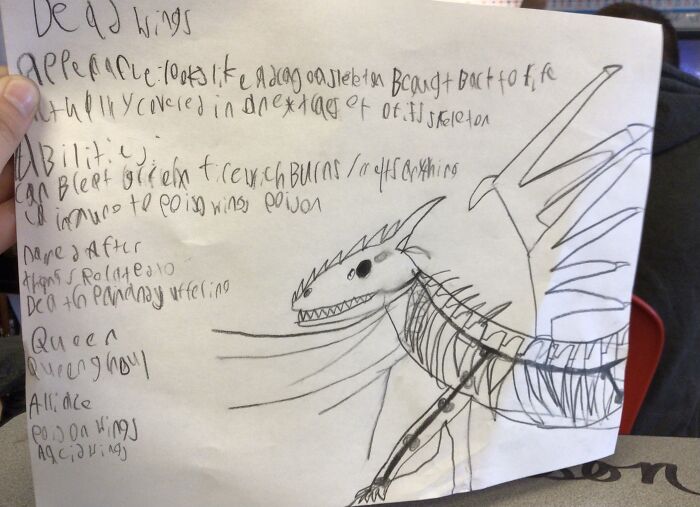 Dead wings
Apperance: looks like a dragon skeleton Bcaugt Bact to life
fully covered in an extra of skeleton
Abilities:
can green fire wich Burns / melts anything
is immune to poison wings poison
named After
things Related to
Death and uffering
Queen
Queen ghoul
Allidce
poison wings
Agcid wings
son